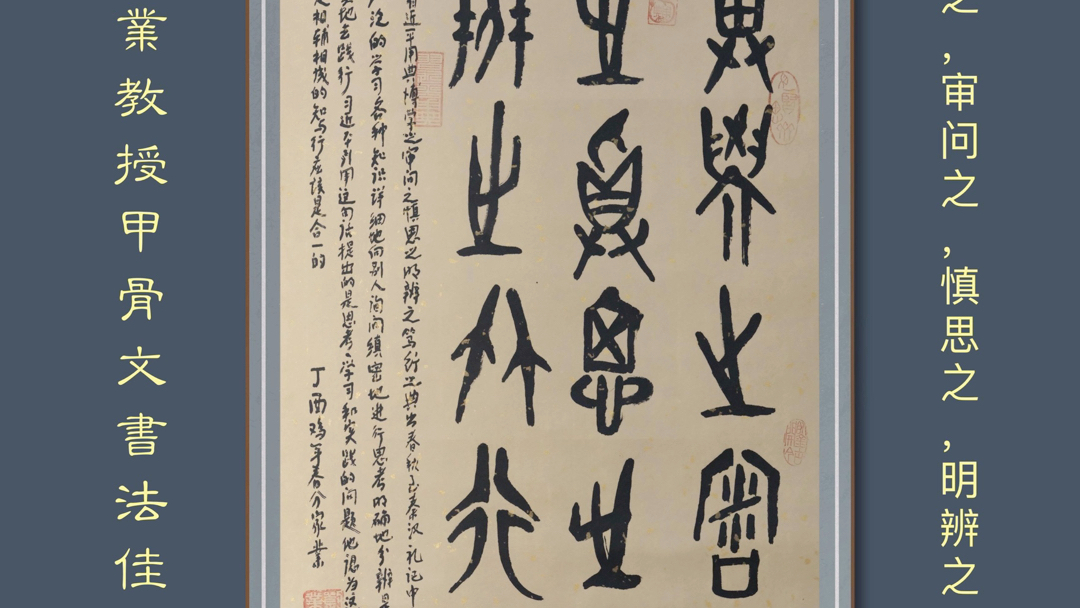 之,审问之,慎思之,明辨之
學之審
之慎思之
辨之篤行
近平用典博学之审问之慎思之明辨之笃行之典出春秋至秦汉礼记中
泛的学习各种知识详细地向别人询问缜密地进行思考明确地分辨是
地去践行习近平引用这句话提出的是思考、学习和实践的问题他认为这
相辅相成的知与行应该是合一的
丁酉鸡年春分家業
業教授甲骨文書法佳